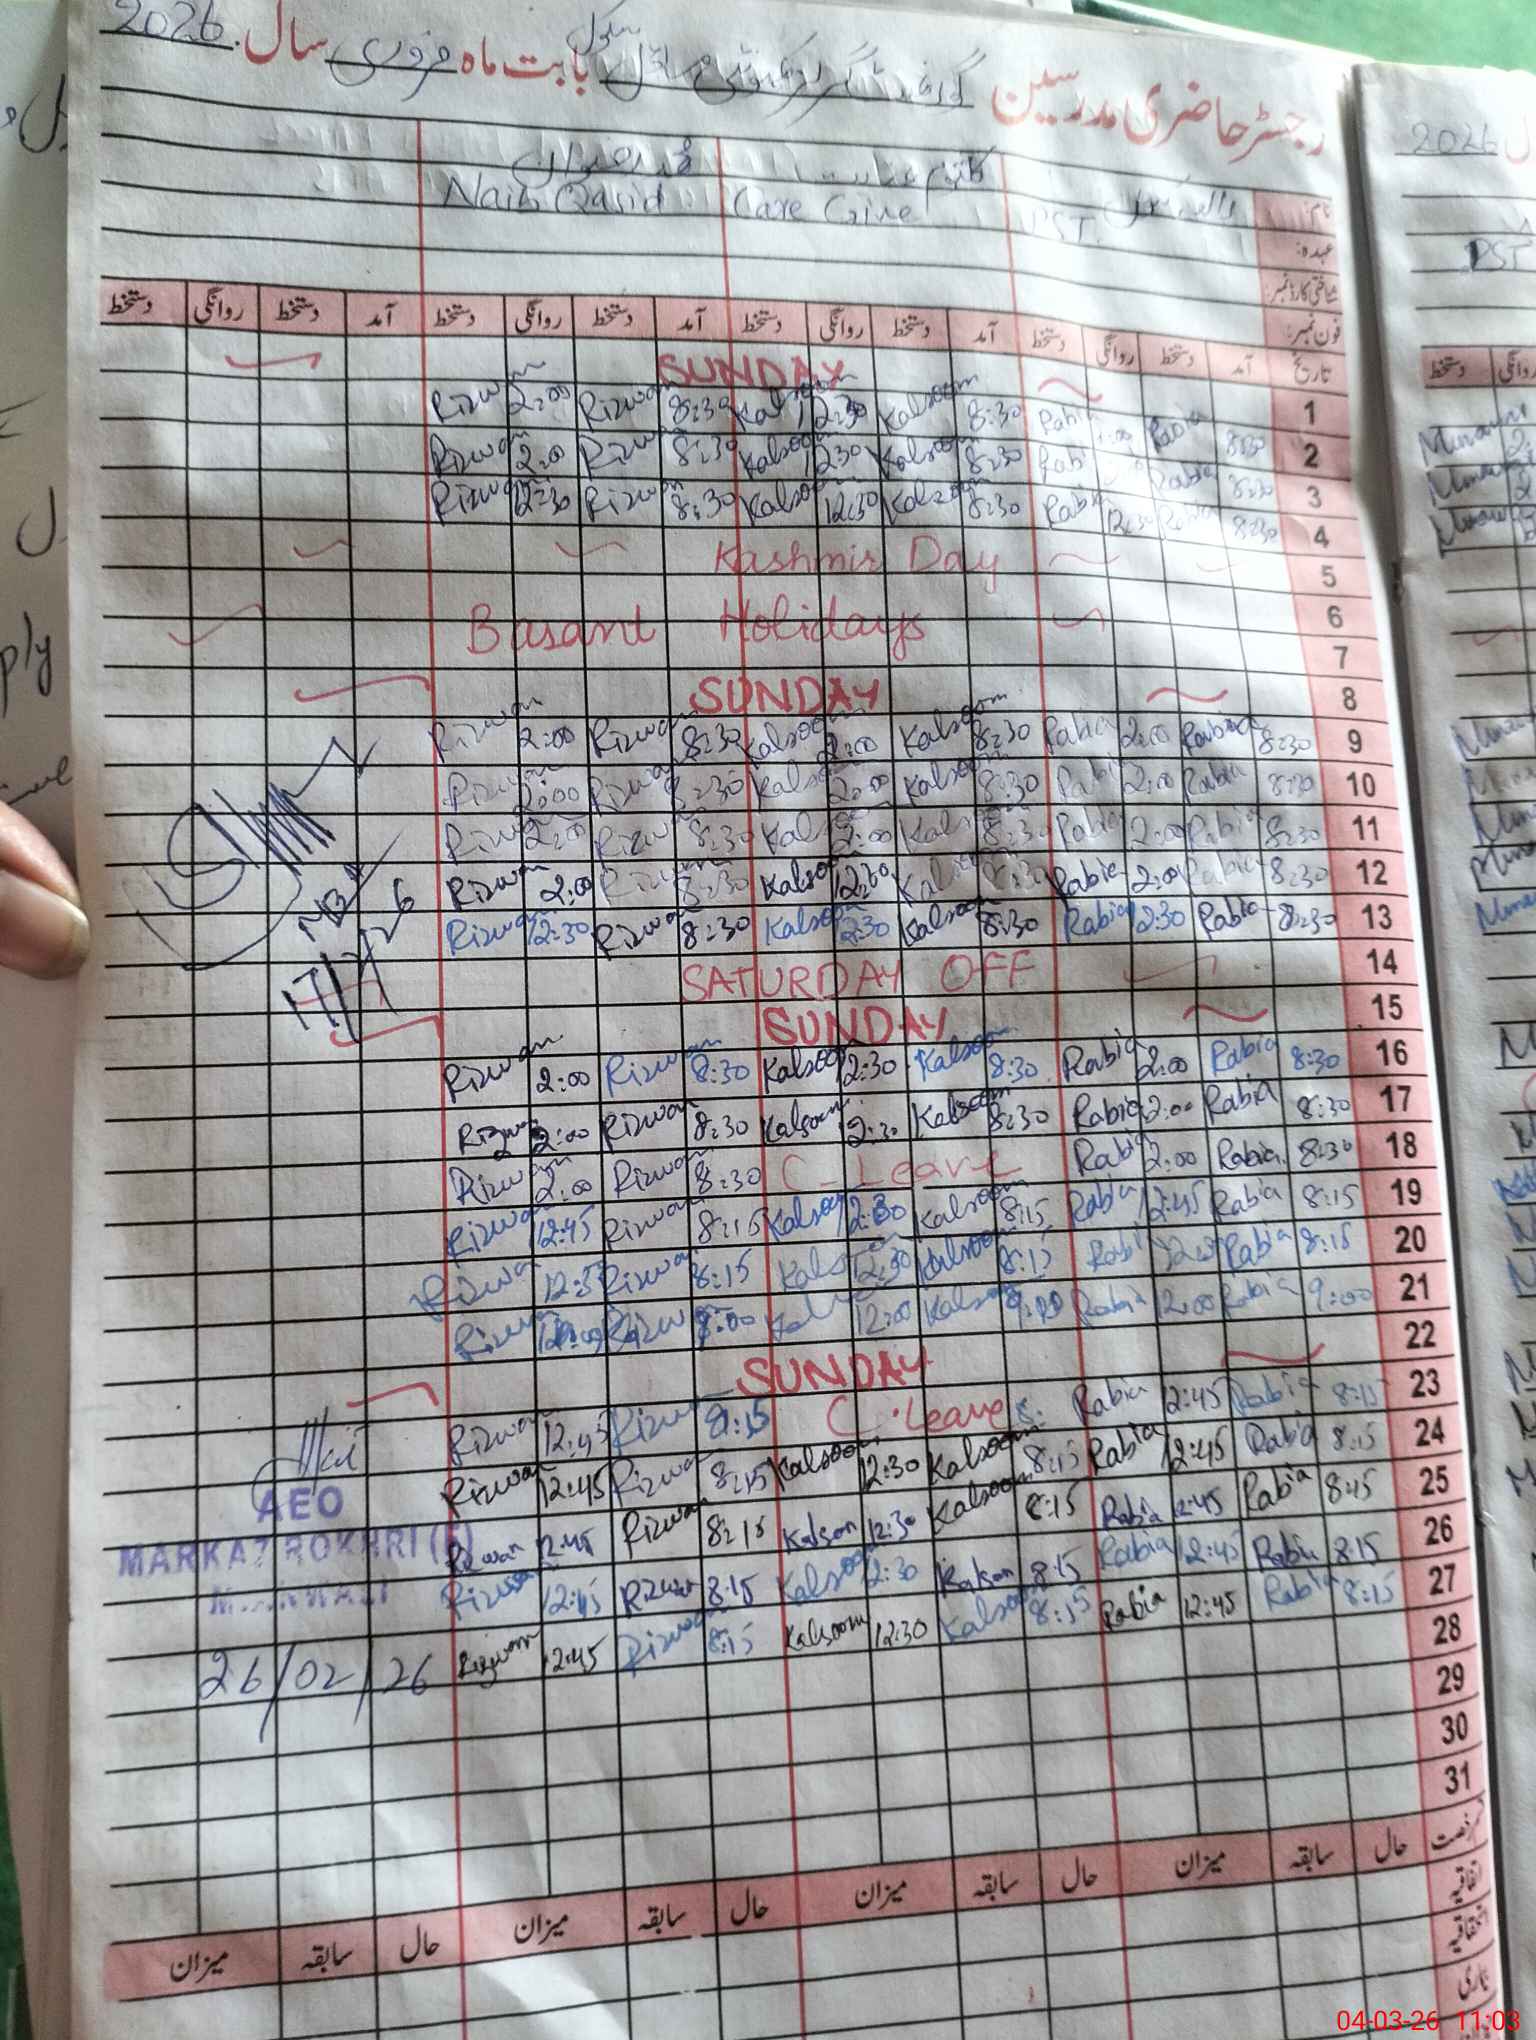 رجسٹر حاضری مدرسین بابت ماہ فروری سال 2026
2026
نام:
Naib Qasid Care Give PST.
عہدہ:
PST
شناختی کارڈ نمبر:
فون نمبر:
تاریخ آمد دستخط روانگی دستخط آمد دستخط روانگی دستخط آمد دستخط روانگی دستخط آمد دستخط روانگی دستخط
دستخط
SUNDAY
1
Rizwan 2:00 Rizwan 8:30 Kalsoom 12:30 Kalsoom 8:30 Rabia Rabia 8:30 2
Rizwan 2:00 Rizwan 8:30 Kalsoom 12:30 Kalsoom 8:30 Rabia Rabia 8:30 3
Rizwan 12:30 Rizwan 8:30 Kalsoom 12:30 Kalsoom 8:30 Rabia 12:30 Rabia 8:30 4
Kashmir Day 5
Basant Holidays 6
7
SUNDAY 8
Rizwan 2:00 Rizwan 8:30 Kalsoom 2:00 Kalsoom 8:30 Rabia 2:00 Rabia 8:30 9
Rizwan 2:00 Rizwan 8:30 Kalsoom 2:00 Kalsoom 8:30 Rabia 2:00 Rabia 8:30 10
Rizwan 2:00 Rizwan 8:30 Kalsoom 2:00 Kalsoom 8:30 Rabia 2:00 Rabia 8:30 11
Rizwan 2:00 Rizwan 8:30 Kalsoom 12:30 Kalsoom 8:30 Rabia 2:00 Rabia 8:30 12
Rizwan 12:30 Rizwan 8:30 Kalsoom 12:30 Kalsoom 8:30 Rabia 12:30 Rabia 8:30 13
17/2/26
SATURDAY OFF 14
SUNDAY 15
Rizwan 2:00 Rizwan 8:30 Kalsoom 12:30 Kalsoom 8:30 Rabia 2:00 Rabia 8:30 16
Rizwan 2:00 Rizwan 8:30 Kalsoom 12:30 Kalsoom 8:30 Rabia 2:00 Rabia 8:30 17
Rizwan 2:00 Rizwan 8:30 C_Leave Rabia 2:00 Rabia 8:30 18
Rizwan 12:45 Rizwan 8:15 Kalsoom 12:30 Kalsoom 8:15 Rabia 12:45 Rabia 8:15 19
Rizwan Rizwan 8:15 Kalsoom 12:30 Kalsoom 8:15 Rabia Rabia 8:15 20
Rizwan Rizwan Kalsoom 12:00 Kalsoom 9:00 Rabia 12:00 Rabia 9:00 21
SUNDAY 22
Rizwan 12:45 Rizwan 8:15 C.Leave Rabia 12:45 Rabia 8:15 23
Rizwan 12:45 Rizwan 8:15 Kalsoom 12:30 Kalsoom 8:15 Rabia 12:45 Rabia 8:15 24
Rizwan 12:45 Rizwan 8:15 Kalsoom 12:30 Kalsoom 8:15 Rabia 12:45 Rabia 8:45 25
Rizwan 12:45 Rizwan 8:15 Kalsoom 12:30 Kalsoom 8:15 Rabia 12:45 Rabia 8:15 26
Rizwan 12:45 Rizwan 8:15 Kalsoom 12:30 Kalsoom 8:15 Rabia 12:45 Rabia 8:15 27
28
AEO
MARKAZ ROKHRI (F)
MIANWALI
26/02/26
29
30
31
رخصت حال سابقہ میزان حال سابقہ میزان حال سابقہ میزان حال سابقہ میزان
اتفاقیہ
استحقاقیہ
بیماری
04-03-26 11:03